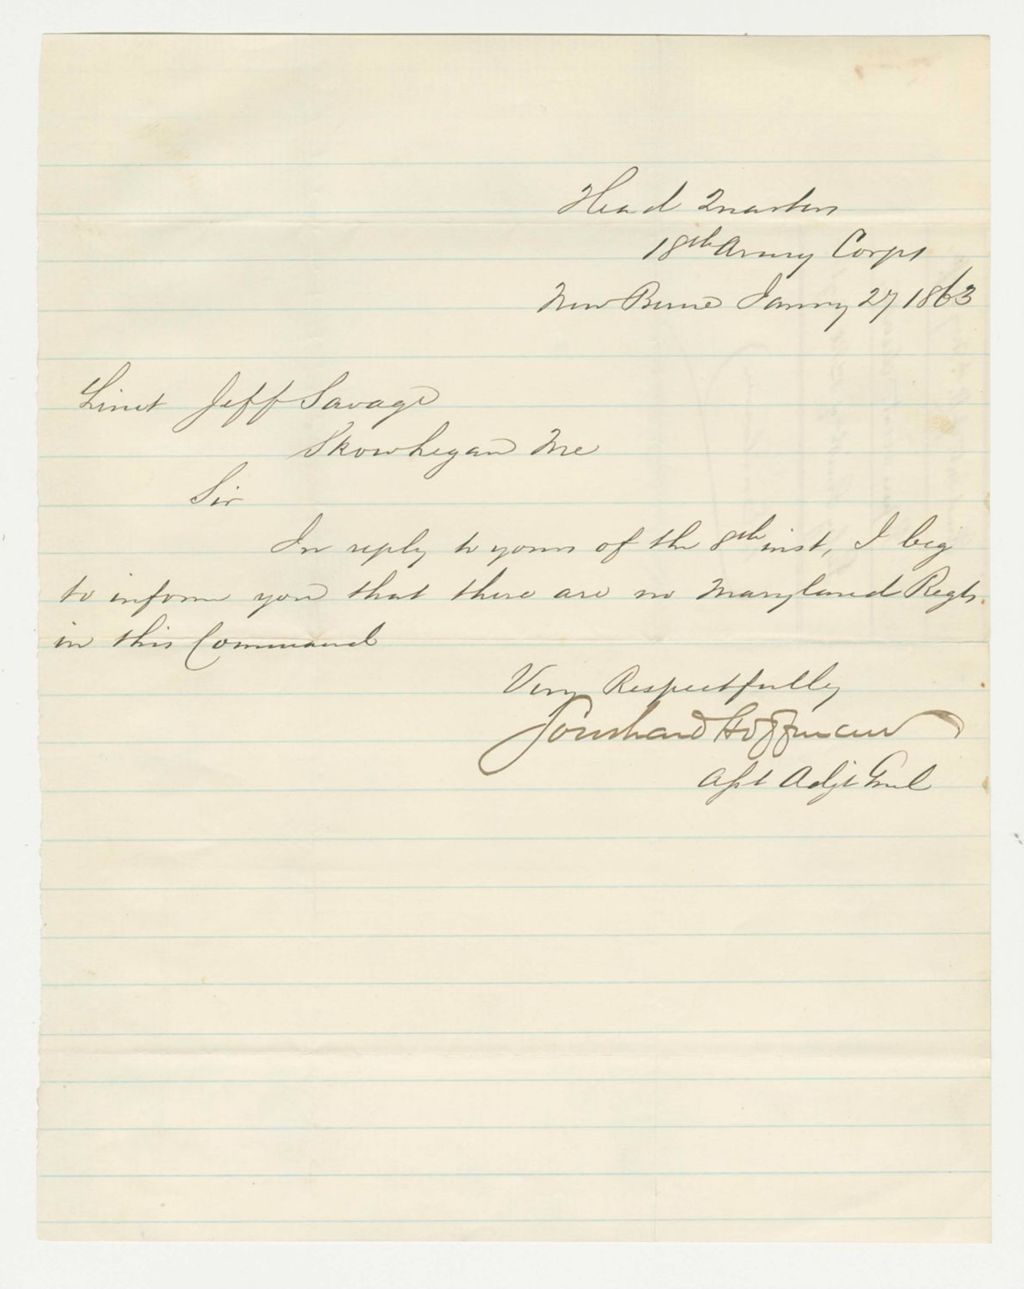 Head Quarters
18th Army Corps
New Berne Janry 27 1863
Lieut Jeff Savage
Skowhegan Me
Sir
In reply to yours of the 8th inst, I beg
to inform you that there are no Maryland Regts.
in this Command
Very Respectfully
Southard Hoffman
Asst Adjt Genl